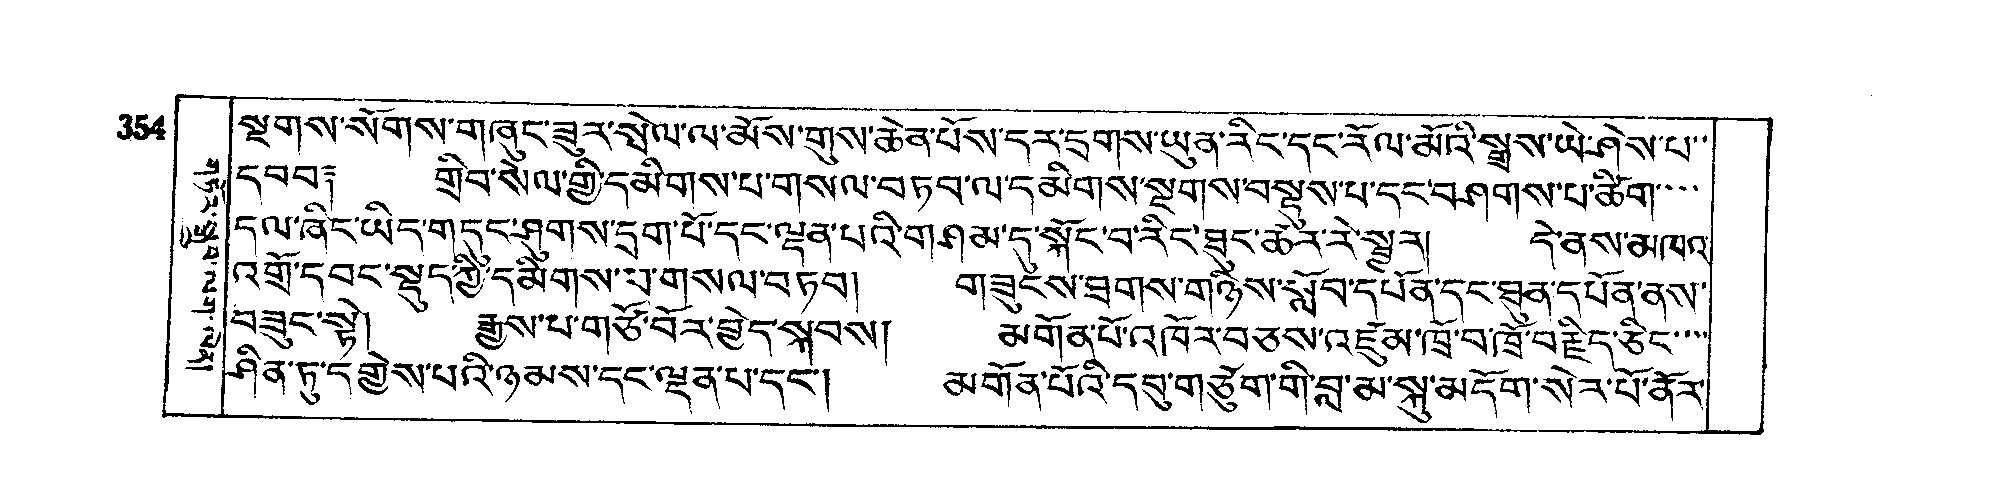 354
སྔགས་སོགས་གཞུང་ཟུར་སྤེལ་ལ་མོས་གུས་ཆེན་པོས་དར་དྲགས་ཡུན་རིང་དང་རོལ་མོའི་སྒྲས་ཡེ་ཤེས་པ་
དབབ༔ གྲིབ་སེལ་གྱི་དམིགས་པ་གསལ་བཏབ་ལ་དམིགས་སྔགས་བསྡུས་པ་དང་བཤགས་པ་ཚིག་
དལ་ཞིང་ཡིད་གདུང་ཤུགས་དྲག་པོ་དང་ལྡན་པའི་གཤམ་དུ་སྐོང་བ་རིང་ཐུང་ཚར་རེ་སྦྱར། དེ་ནས་མཁའ
འགྲོ་དབང་སྡུད་ཀྱི་དམིགས་པ་གསལ་བཏབ། གཟུངས་ཐགས་གཉིས་སློབ་དཔོན་དང་ཐུན་དཔོན་ནས་
བཟུང་སྟེ། རྒྱས་པ་གཙོ་བོར་བྱེད་སྐབས། མགོན་པོ་འཁོར་བཅས་འཛུམ་ཁྲོ་བ་ཁྲོ་བརྗིད་ཅིང་
ཤིན་ཏུ་དགྱེས་པའི་ཉམས་དང་ལྡན་པ་དང་། མགོན་པོའི་དབུ་གཙུག་གི་བླ་མ་སྐུ་མདོག་སེར་པོ་ནོར་